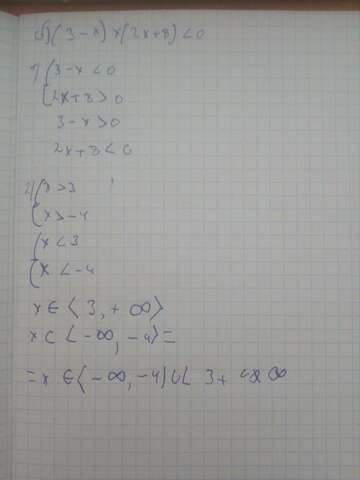 б) (3-x)×(2x+8)<0
1) { 3-x<0
{ 2x+8>0
3-x>0
2x+8<0
2) { x>3
{ x>-4
{ x<3
{ x<-4
x∈⟨3,+∞⟩
x⊂⟨-∞,-4⟩=
=x∈(-∞,-4)∪⟨ 3+ ∞